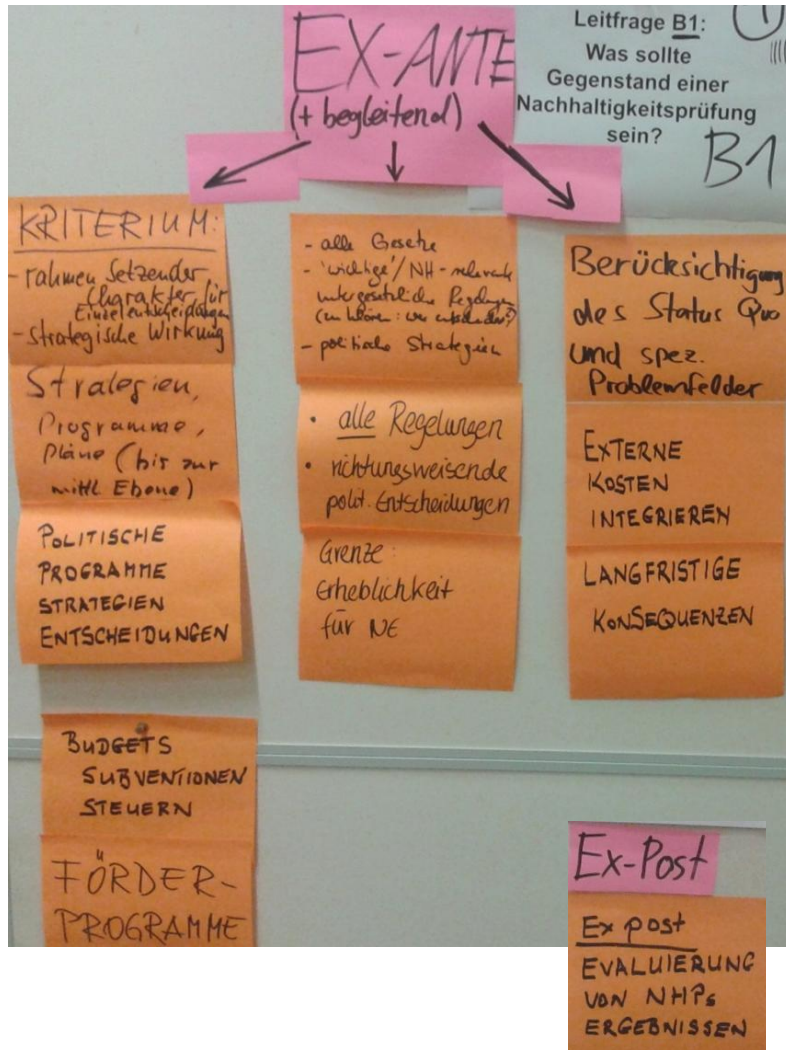 EX-ANTE
(+ begleitend)
Leitfrage B1:
Was sollte
Gegenstand einer
Nachhaltigkeitsprüfung
sein?
B1
1
KRITERIUM:
- rahmen setzender
Charakter für
Einzelentscheidungen
- strategische Wirkung
Strategien,
Programme,
Pläne (bis zur
mittl Ebene)
POLITISCHE
PROGRAMME
STRATEGIEN
ENTSCHEIDUNGEN
BUDGETS
SUBVENTIONEN
STEUERN
FÖRDER-
PROGRAMME
- alle Gesetze
- 'wichtige'/NH-relevante
untergesetzliche Regelungen
(zu klären: wer entscheidet?)
- politische Strategien
• alle Regelungen
• richtungsweisende
polit. Entscheidungen
Grenze:
Erheblichkeit
für NE
Berücksichtigung
des Status Quo
und spez.
Problemfelder
EXTERNE
KOSTEN
INTEGRIEREN
LANGFRISTIGE
KONSEQUENZEN
Ex-Post
Ex post
EVALUIERUNG
VON NHPs
ERGEBNISSEN